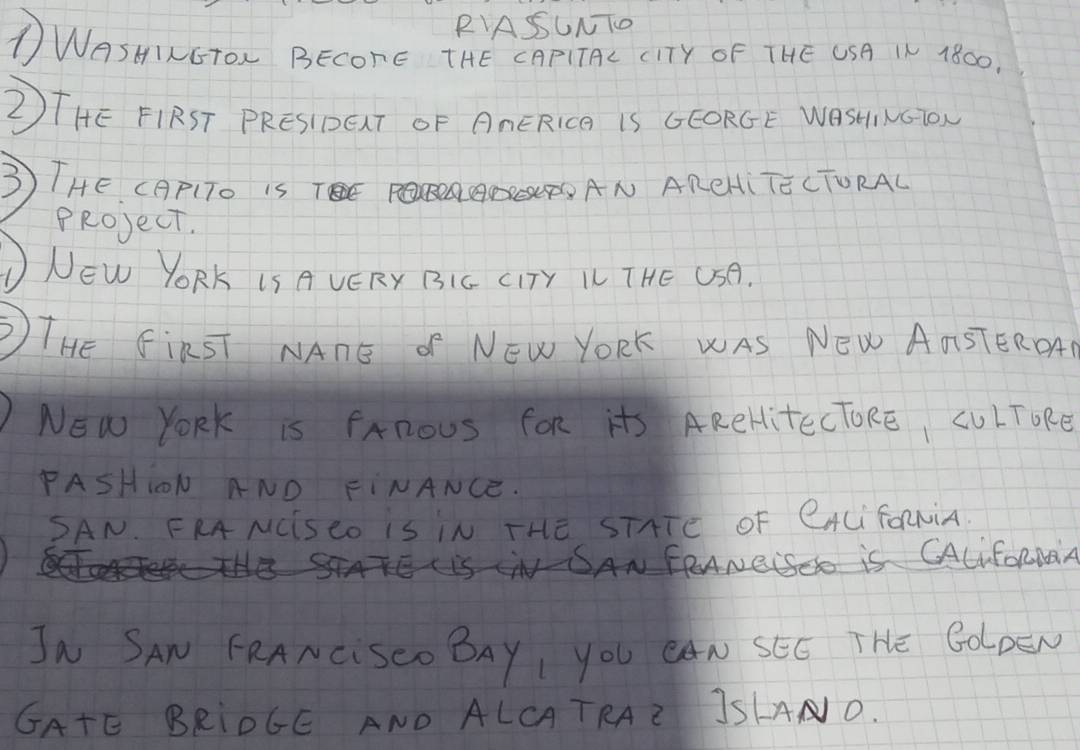 RIASSUNTO
1) WASHINGTON BECOME THE CAPITAL CITY OF THE USA IN 1800.
2) THE FIRST PRESIDENT OF AMERICA IS GEORGE WASHINGTON
3) THE CAPITO IS AN ARCHITECTURAL
PROJECT.
NEW YORK IS A VERY BIG CITY IN THE USA.
5) THE FIRST NAME OF NEW YORK WAS NEW AMSTERDAM
NEW YORK IS FAMOUS FOR ITS ARCHITECTURE, CULTURE
FASHION AND FINANCE.
SAN FRANCISCO IS IN THE STATE OF CALIFORNIA.
THE STATE IS IN SAN FRANCISCO IS CALIFORNIA
IN SAN FRANCISCO BAY, YOU CAN SEE THE GOLDEN
GATE BRIDGE AND ALCATRAZ ISLAND.